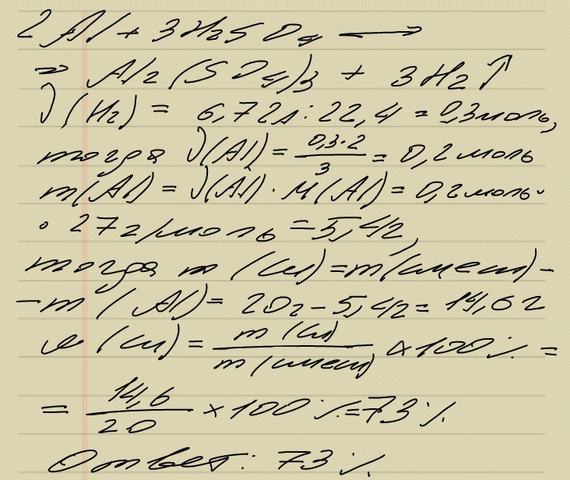 2Al + 3H2SO4 ⟶
⇒ Al2(SO4)3 + 3H2↑
ν(H2) = 6,72л : 22,4 = 0,3моль,
тогда ν(Al) = 0,3·2/3 = 0,2моль
m(Al) = ν(Al) · M(Al) = 0,2моль·
· 27г/моль = 5,4г,
тогда m (Cu) = m(смеси) –
– m (Al) = 20г – 5,4г = 14,6г
ω (Cu) = m (Cu)/m (смеси) × 100% =
= 14,6/20 × 100% = 73%
Ответ: 73%